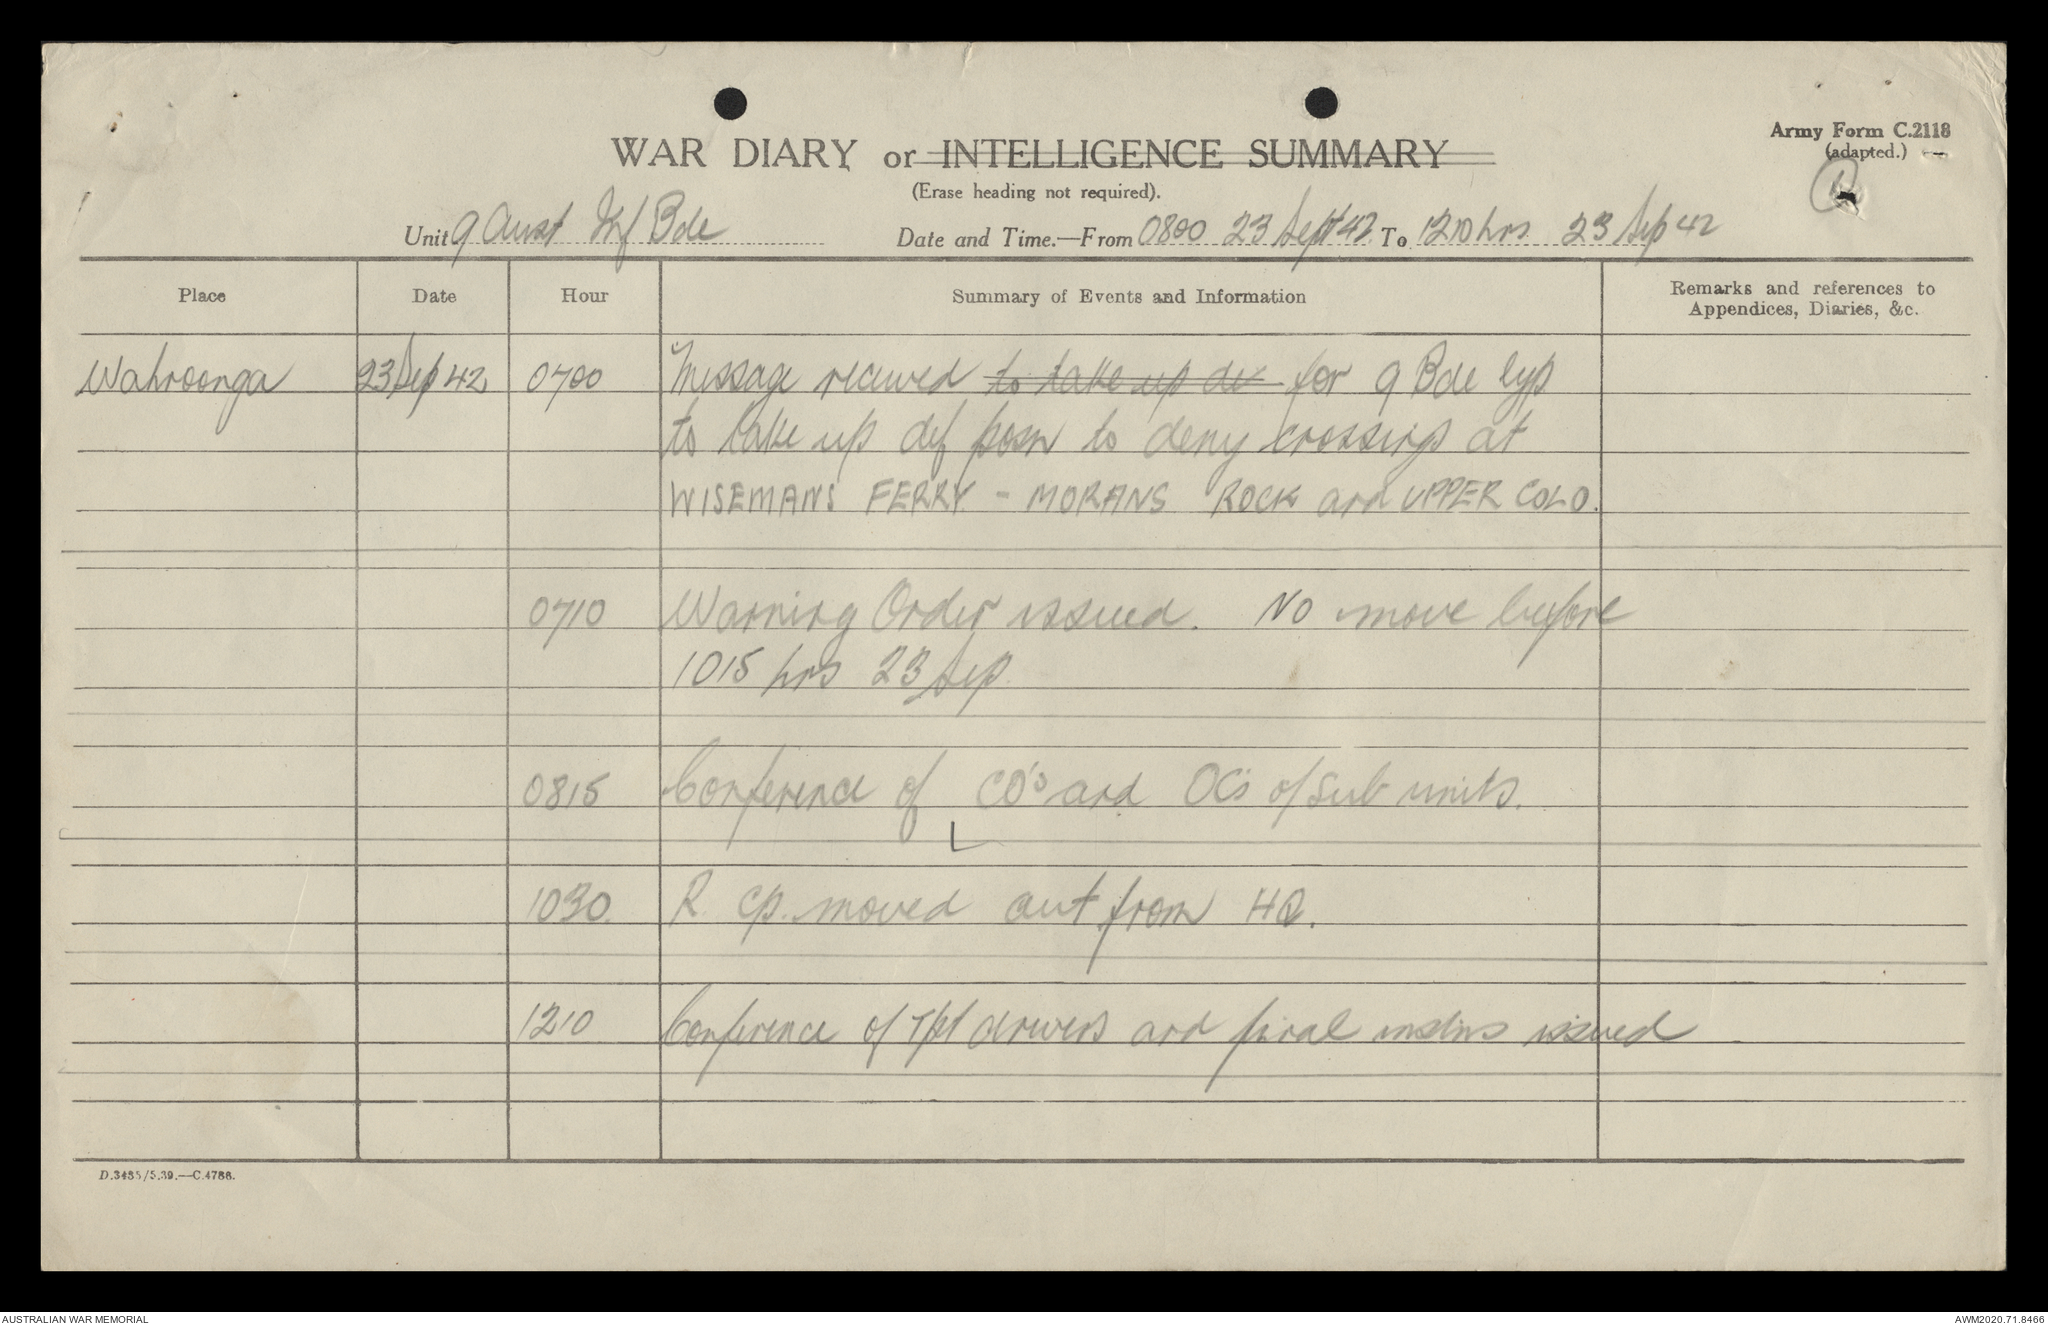 Army Form C.2118
(adapted.)
WAR DIARY or INTELLIGENCE SUMMARY
(Erase heading not required).
Unit 9 Aust Inf Bde Date and Time.—From 0800 23 Sept 42 To 1210 hrs 23 Sep 42
Place Date Hour Summary of Events and Information Remarks and references to
Appendices, Diaries, &c.
Wahroonga 23 Sep 42 0700 Message received to take up de for 9 Bde Gp
to take up def posn to deny crossings at
WISEMANS FERRY - MORANS ROCK and UPPER COLO.
0710 Warning Order issued. No move before
1015 hrs 23 Sep.
0815 Conference of CO's and OC's of Sub units.
L
1030. R. Gp. moved out from HQ.
1210 Conference of Tpt drivers and final instns issued
D.3485/5.39.—C.4788.
AUSTRALIAN WAR MEMORIAL AWM2020.71.8466